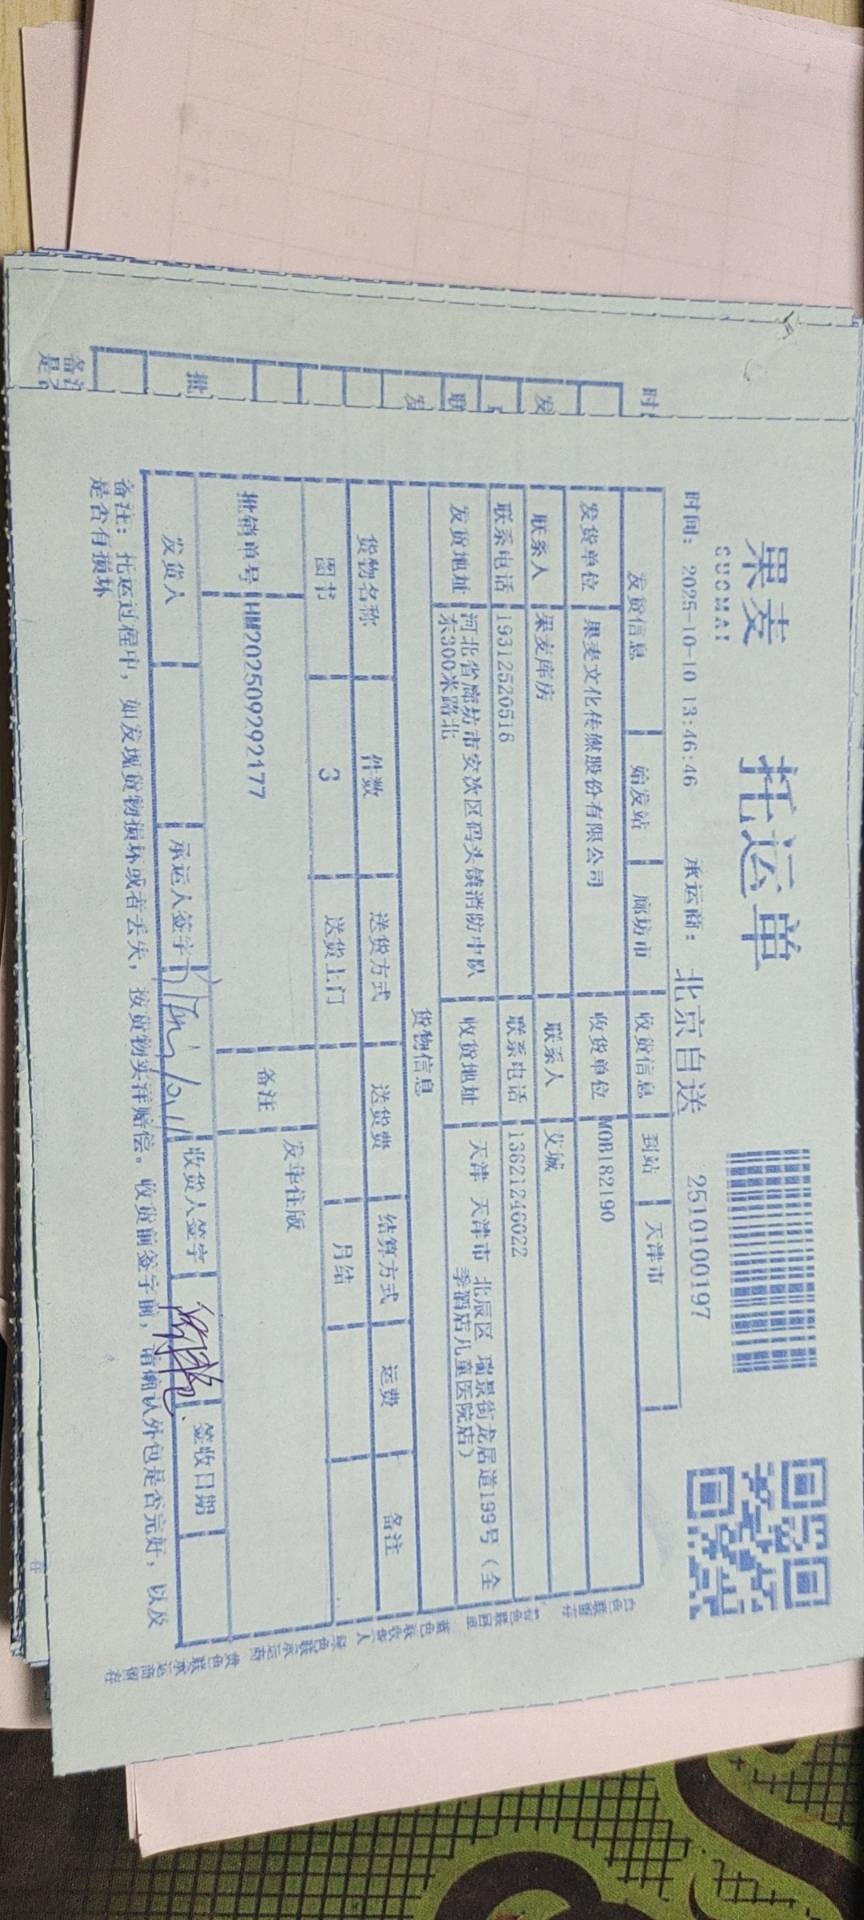 果麦
GUOMAI
托运单
时间： 2025-10-10 13:46:46 承运商： 北京自送 2510100197
发货信息 始发站 廊坊市 收货信息 到站 天津市
发货单位 果麦文化传媒股份有限公司 收货单位 MOB182190
联系人 果麦库房 联系人 艾城
联系电话 19312520516 联系电话 13621246022
发货地址 河北省廊坊市安次区码头镇消防中队东300米路北 收货地址 天津 天津市 北辰区 瑞景街龙居道199号（全季酒店儿童医院店）
货物信息
货物名称 件数 送货方式 送货费 结算方式 运费 备注
图书 3 送货上门 月结
批销单号 HM202509292177 备注 发华住版
发货人 承运人签字 收货人签字 签收日期
备注： 托运过程中，如发现货物损坏或者丢失，按货物实洋赔偿。收货前签字前，请确认外包是否完好，以及
是否有损坏
白色联留存 蓝色联收货人 绿色联承运商 黄色联承运商留存
时
发
联
发
批
备注
是
存